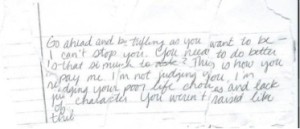 Go ahead and be trifling as you want to be —
I can't stop you. You need to do better
is that so much to ask? This is how you
repay me. I'm not judging you, I'm
judging your poor life choices and lack
of character. You weren't raised like
that